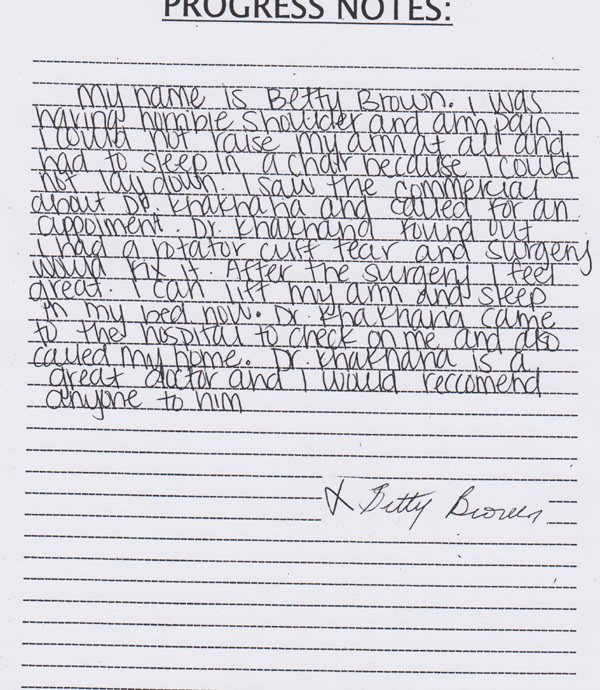 PROGRESS NOTES:
My name is Betty Brown. I was
having horrible shoulder and arm pain
I could not raise my arm at all and
had to sleep in a chair because I could
not lay down. I saw the commercial
about Dr. Khakhana and called for an
appoiment. Dr. Khakhana found out
I had a rotator cuff tear and surgery
would fix it. After the surgery I feel
great. I can lift my arm and sleep
in my bed now. Dr. Khakhana came
to the hospital to check on me and also
called my home. Dr. Khakhana is a
great doctor and I would reccomend
anyone to him
X Betty Brown